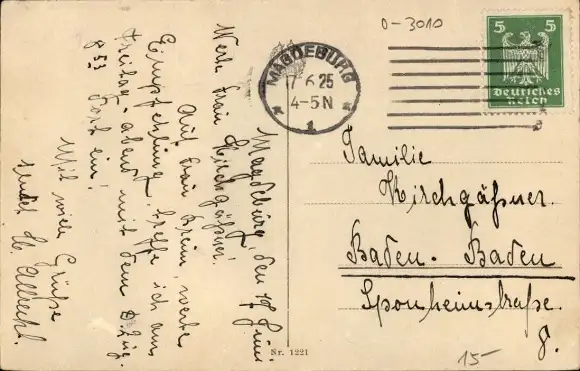 Magdeburg, den 17. Juni
Werte Frau Kirchgäßner!
Auf Frau Krein, werte
Empfehlung, treffe ich am
Freitag-abend mit dem D Zug.
8 53 dort ein!
Mit viele Grüße
sendet
0-3010
MAGDEBURG
17.6.25
4-5N
1
5 5
Deutsches
Reich
Familie
Kirchgäßner
Baden-Baden
Sponheimstraße
8.
15-
Nr. 1221